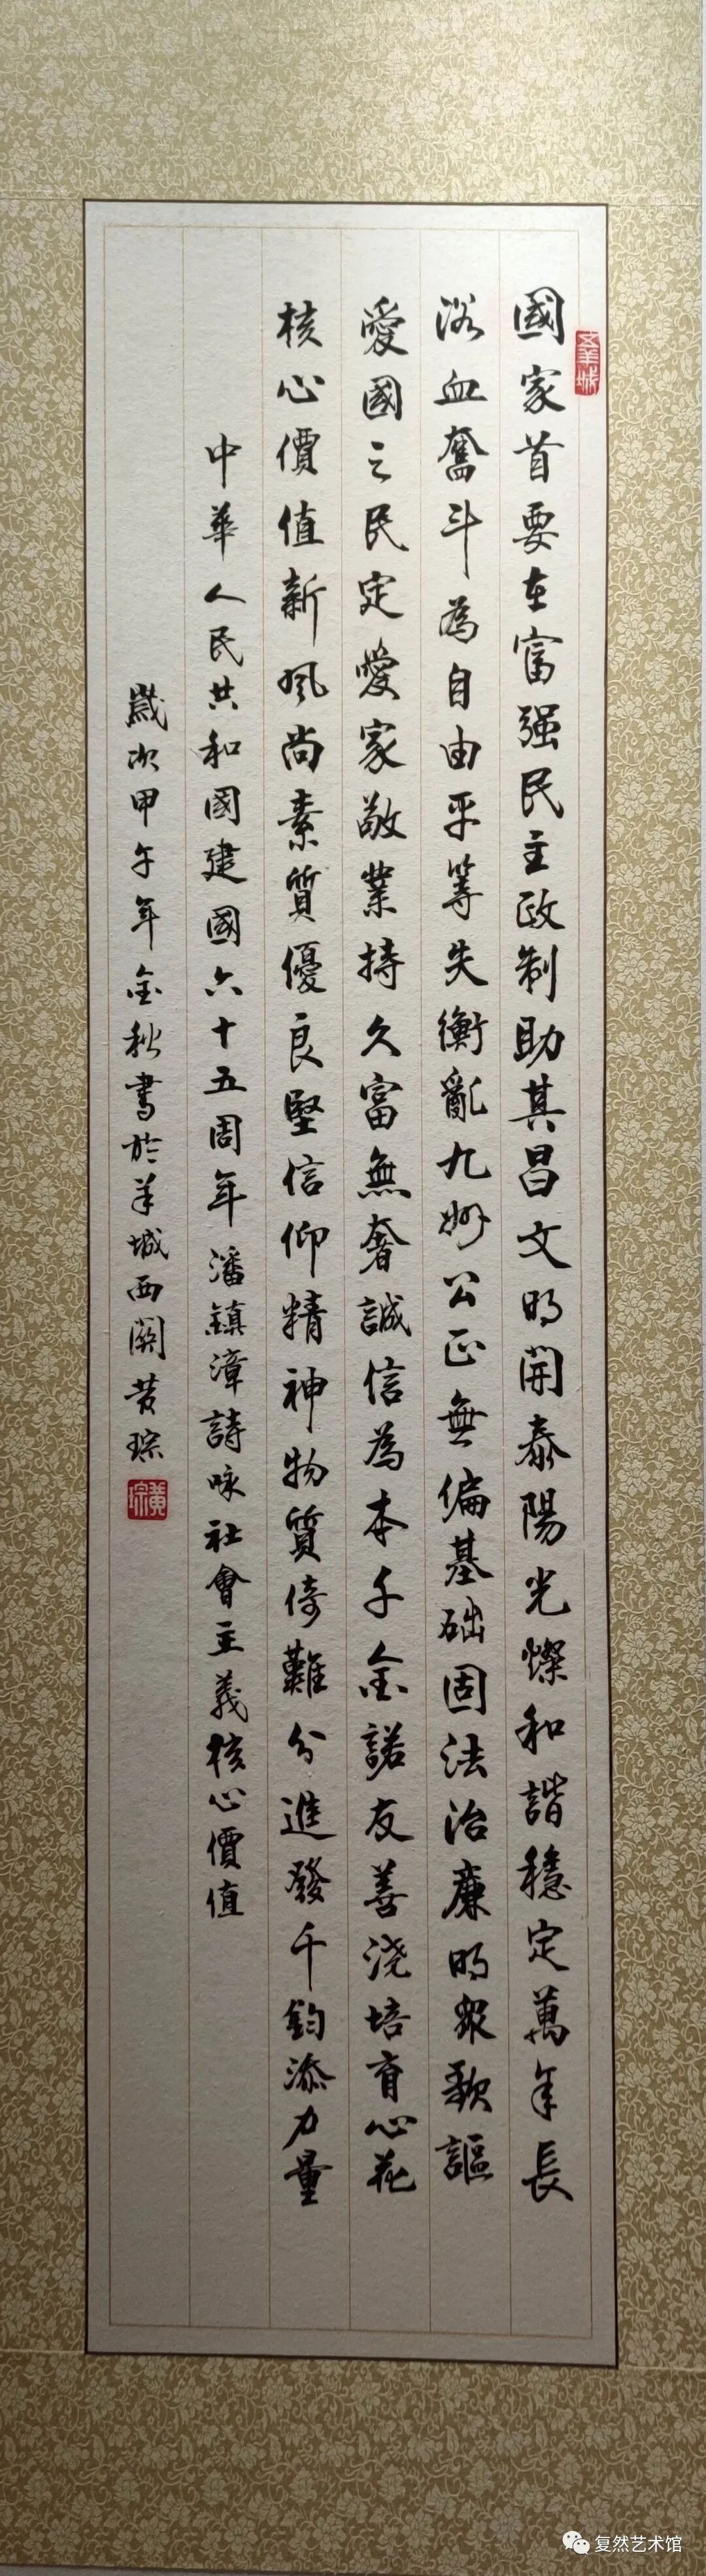 五羊城
國家首要在富强民主政制助其昌文明開泰陽光燦和諧穩定萬年長
浴血奮斗為自由平等失衡亂九州公正無偏基础固法治廉明眾歌謳
愛國之民定愛家敬業持久富無奢誠信為本千金諾友善浇培育心花
核心價值新風尚素質優良堅信仰精神物質倚難分進發千鈞添力量
中華人民共和國建國六十五周年潘鎮漳詩咏社會主義核心價值
歲次甲午年金秋書於羊城西關黄琮
黃琮
复然艺术馆